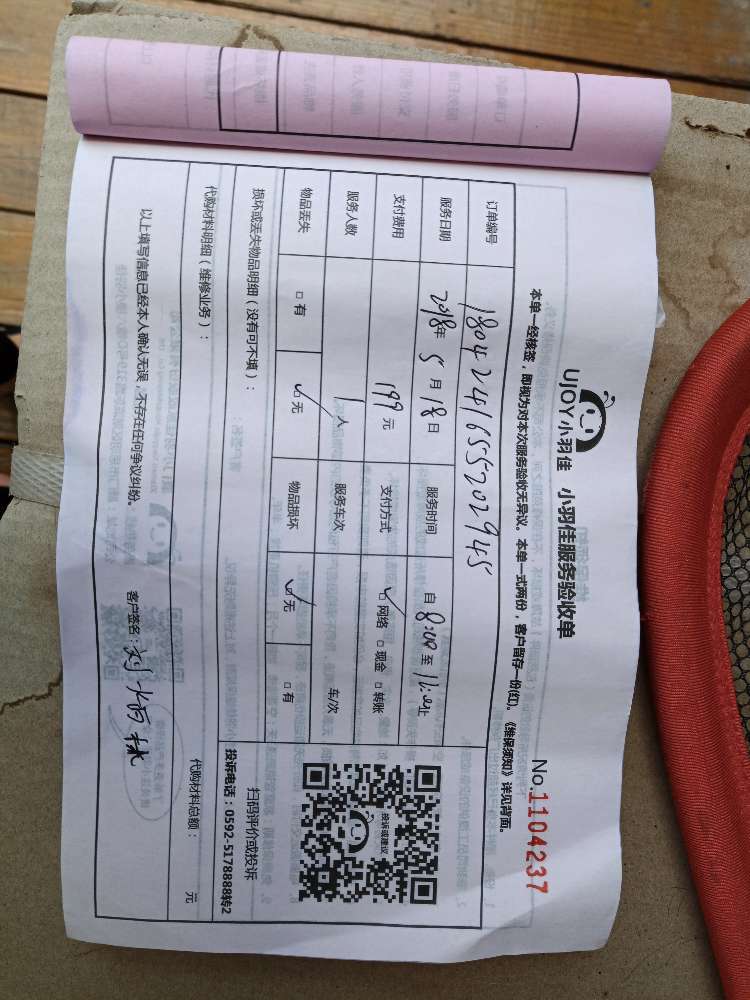 UJOY小羽佳 小羽佳服务验收单
No.1104237
本单一经核签，即视为对本次服务验收无异议。本单一式两份，客户留存一份(红)。《维保须知》详见背面。
订单编号 1804241655202945
服务日期 2018年 5月 18日 服务时间 自 8:00 至 11:00止
支付费用 199 元 支付方式 ☑网络 □现金 □转账
服务人数 1 人 服务车次 车/次
物品丢失 □有 ☑无 物品损坏 ☑无 □有
投诉或建议
扫码评价或投诉
投诉电话：0592-5178888转2
损坏或丢失物品明细（没有可不填）：
代购材料明细（维修业务）： 代购材料总额： 元
以上填写信息已经本人确认无误，不存在任何争议纠纷。 客户签名：